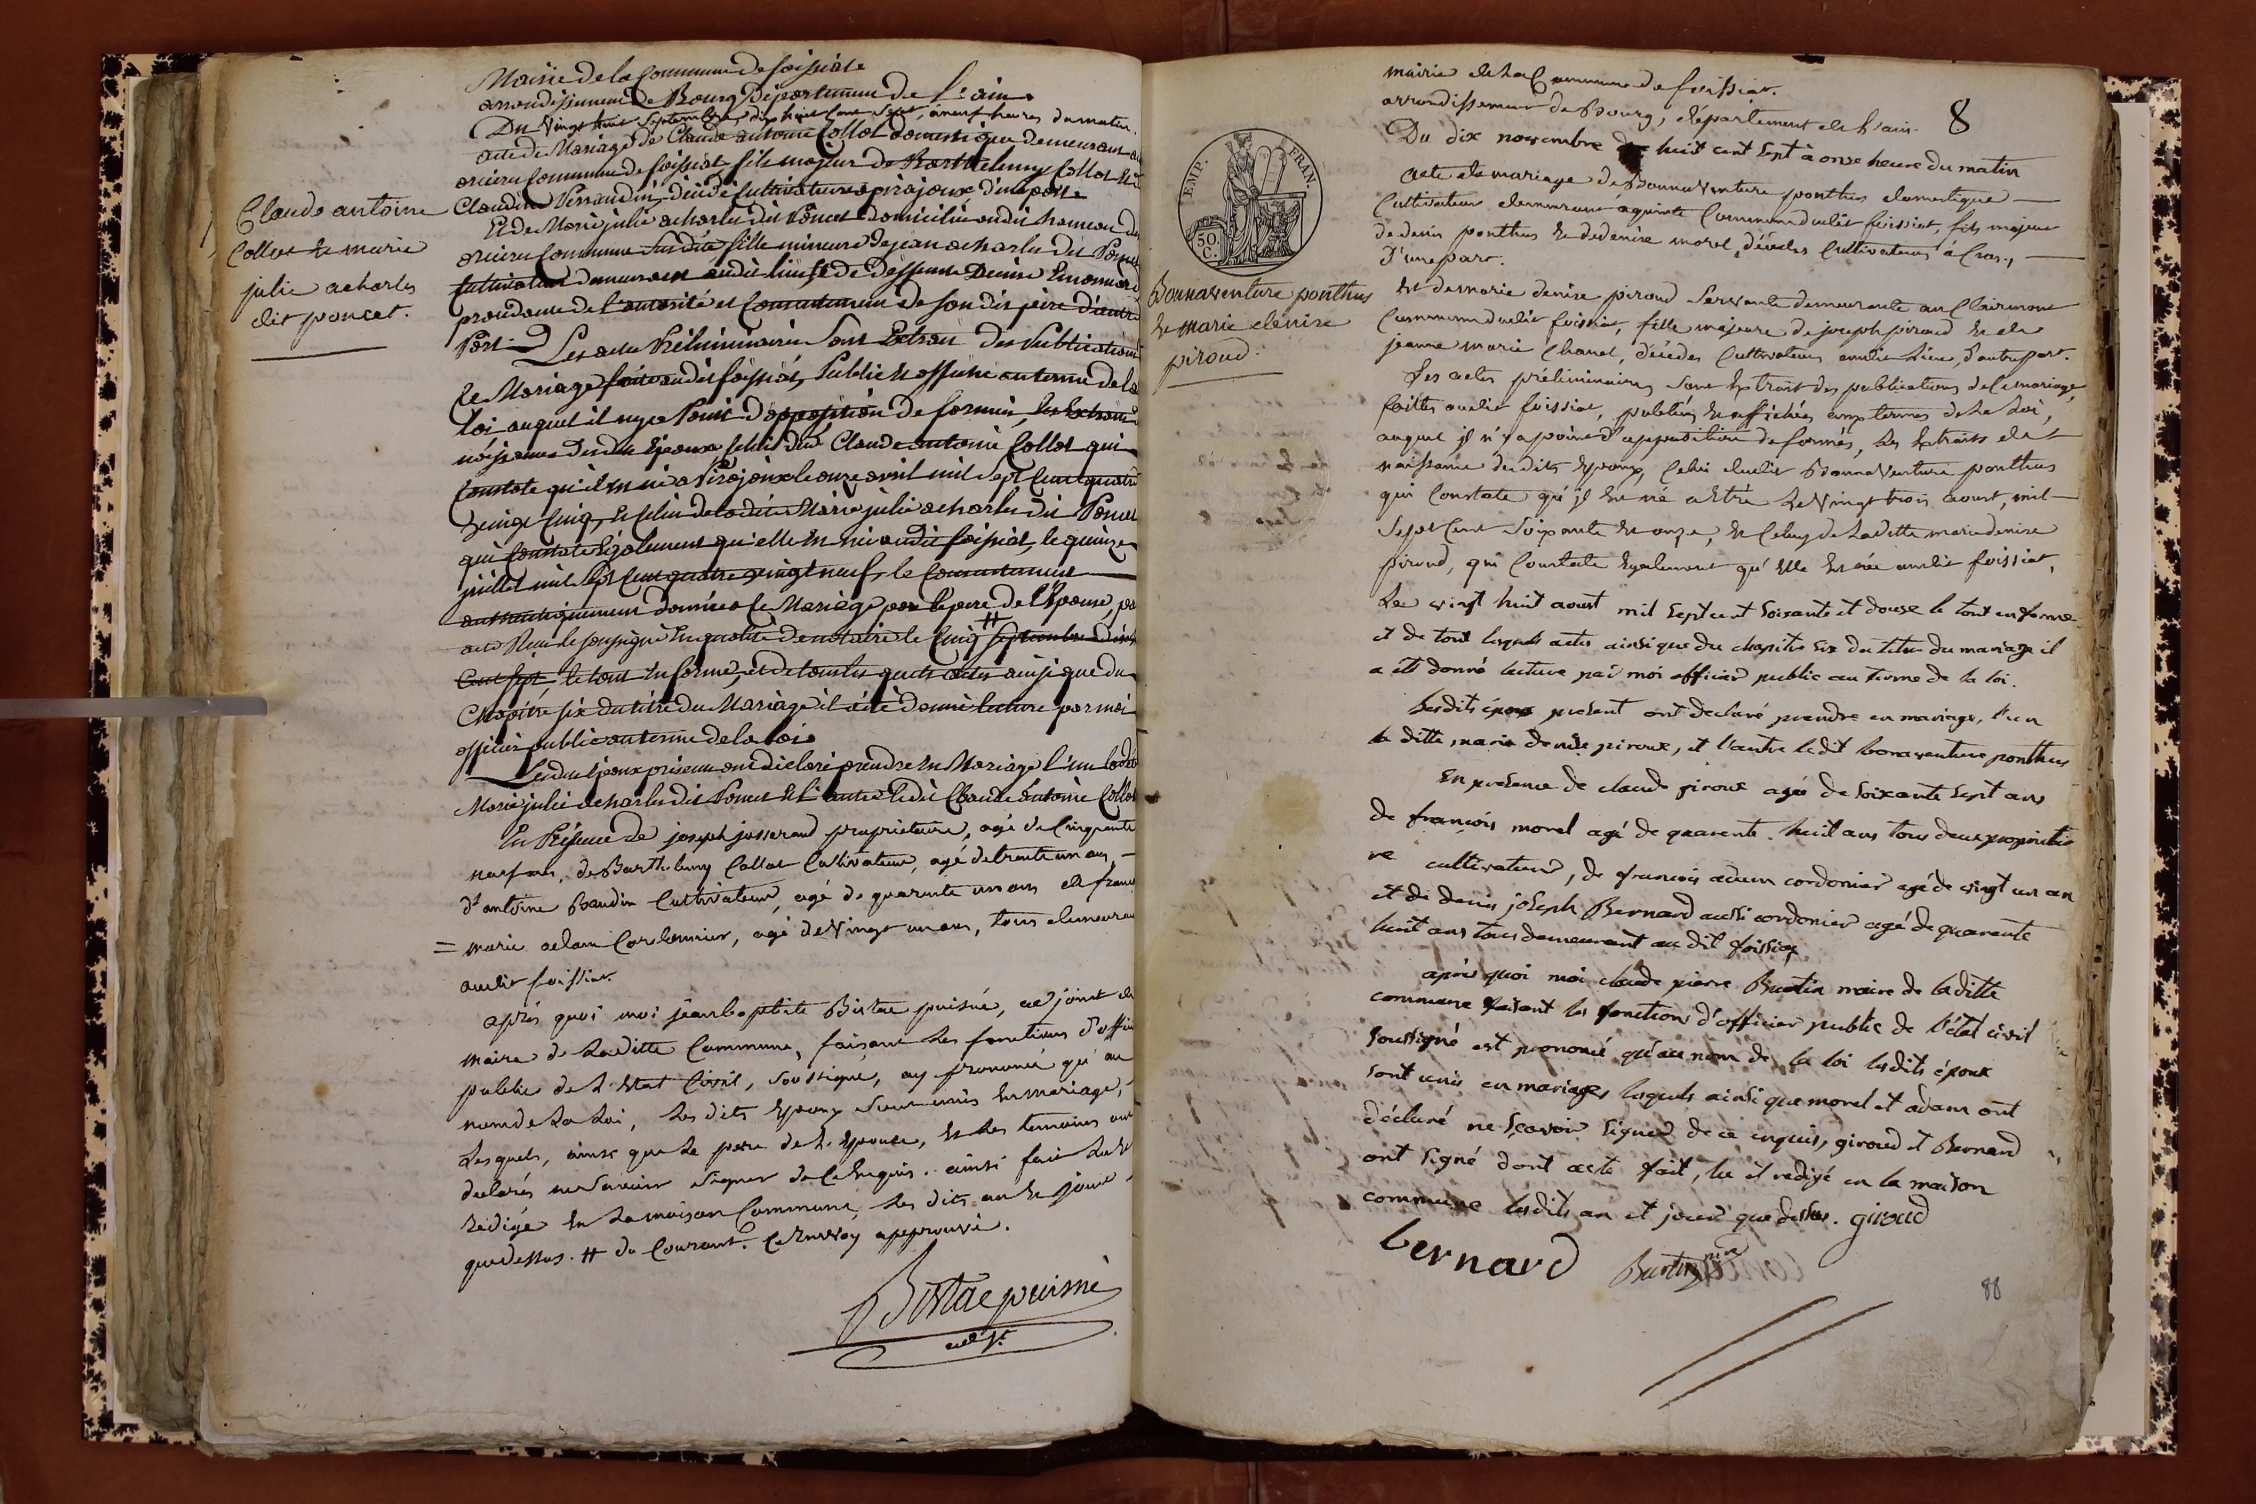 Mairie de la Commune de foissiat
arrondissement de Bourg Département de l'ain
Du vingt huit septembre dix huit cent sept, à neuf heures du matin.
acte de Mariage de Claude antoine Collot domestique demeurant au
commune de foissiat, fils majeur de Barthelemy Collot et de
Claudine Perraudin, décédé cultivateurs à pirajoux, d'une part
Et de Marie julie acharles dit Poncet domiciliée audit hameau du
commune susdite fille mineure de jean acharles dit Poncet
cultivateur demeurant audit lieu, & de deffunte Denise
procédante de l'autorité et consentement de son dit père d'autre
Part. Les actes Préliminaires Sont Extrait des Publications
de Mariage faites audit foissiat, Publié et affiché au terme de la
loi auquel il ny a Point d'opposition de formée, les Extraits
de naissance desdits Epoux, celui dud. Claude antoine Collot qui
Constate qu'il est né a Pirajoux le onze avril mil sept Cent quatre
vingt cinq, et celui de la dite Marie julie acharles dit Poncet
qui Constate Egalement qu'elle est née audit foissiat, le quinze
juillet mil sept Cent quatre vingt neuf, le Consentement
authentiquement donné a ce Mariage par le pere de l'Epouse, par
acte Reçu le soussigné En qualité de notaire le Cinq # septembre dix huit
Cent sept, le tout En forme, et de tous les quels actes ainsi que du
Chapitre six du titre du Mariage il a été donné lecture par moi
officier public au terme de la loi
Lesdits Epoux présent ont déclaré prendre en Mariage l'un ladite
Marie julie acharles dit Poncet Et l'autre ledit Claude antoine Collot
En Présence de joseph josserand proprietaire, agé de Cinquante
neuf ans, de Barthelemy Collot Cultivateur, agé de trente un ans,
d'antoine Baudin Cultivateur, agé de quarante un ans et de francois
= marie adam Cordonnier, agé de Vingt un ans, tous demeurant
audit foissiat.
après quoi moi jean baptiste Bistac puisné, adjoint du
maire de Laditte Commune, faisant les fonctions d'officier
public de l'Etat Civil, soussigné, ay prononcé qu'au
nom de La Loi, Les dits Epoux sont unis En mariage,
Lesquels, ainsi que Le pere de L'Epouse, et Les temoins ont
declarés ne savoir signer de ce Enquis. ainsi fait Lu et
rédigé En La maison Commune, Les dits an et jour
que dessus. # du Courant. Ce Renvoy approuvé.
Bistac puisné
adjt.
Claude antoine
Collot et marie
julie acharles
dit poncet.
8
mairie de La Commune de foissiat.
arrondissement de Bourg, département de L'ain.
Du dix novembre dix huit cent sept à onze heure du matin
Acte de mariage de Bonnaventure ponthus domestique
Cultivateur demeurant Commune dudit foissiat, fils majeur
de denis ponthus et de denise morel, décédés Cultivateurs à Cras,
d'une part.
Et de marie denise piroud Servante demeurante au Clairmont
Commune dudit foissiat, fille majeure de joseph piroud et de
jeanne marie Chanel, décédés Cultivateurs audit Lieu, d'autre part.
Les actes préliminaires sont Extrait des publications de Ce mariage
faittes audit foissiat, publiées et affichées aux termes de La Loi,
auquel il n'y a point d'opposition de formés, Les Extraits de
naissance desdits Epoux, Celui dudit Bonnaventure ponthus
qui Constate qu'il Est né a Etré Le vingt trois aoust, mil
Sept Cent Soixante et onze, et Celuy de Laditte marie denise
piroud, qui Constate Egalement qu'Elle Est née audit foissiat,
Le vingt huit aoust mil sept cent soixante et douze le tout en forme
et de tout lesquels actes ainsi que du chapitre six du titre du mariage il
a été donné lecture par moi officier public au terme de la loi.
Lesdits époux présent ont déclaré prendre en mariage, l'un
la ditte marie denise piroux, et l'autre ledit bonaventure ponthus
En présence de claude giroux agé de soixante sept ans
de francois morel agé de quarente huit ans tous deux proprietai
re cultivateur, de francois adam cordonier agé de vingt un an
et de denis joseph Bernard aussi cordonier agé de quarente
huit ans tous demeurant au dit foissiat
après quoi moi claude pierre Buatin maire de laditte
commune faisant les fonctions d'officier public de l'état civil
soussigné est prononcé qu'au nom de la loi lesdits époux
sont unis en mariages lesquels ainsi que morel et adam ont
déclaré ne sçavoir signer de ce enquis, giroud et Bernard
ont signé dont acte fait, lu et redigé en la maison
commune lesdits an et jour que dessus. giroud
bernard
Buatin
88
EMP. FRAN.
50. C.
Bonnaventure ponthus
et marie denise
piroud.